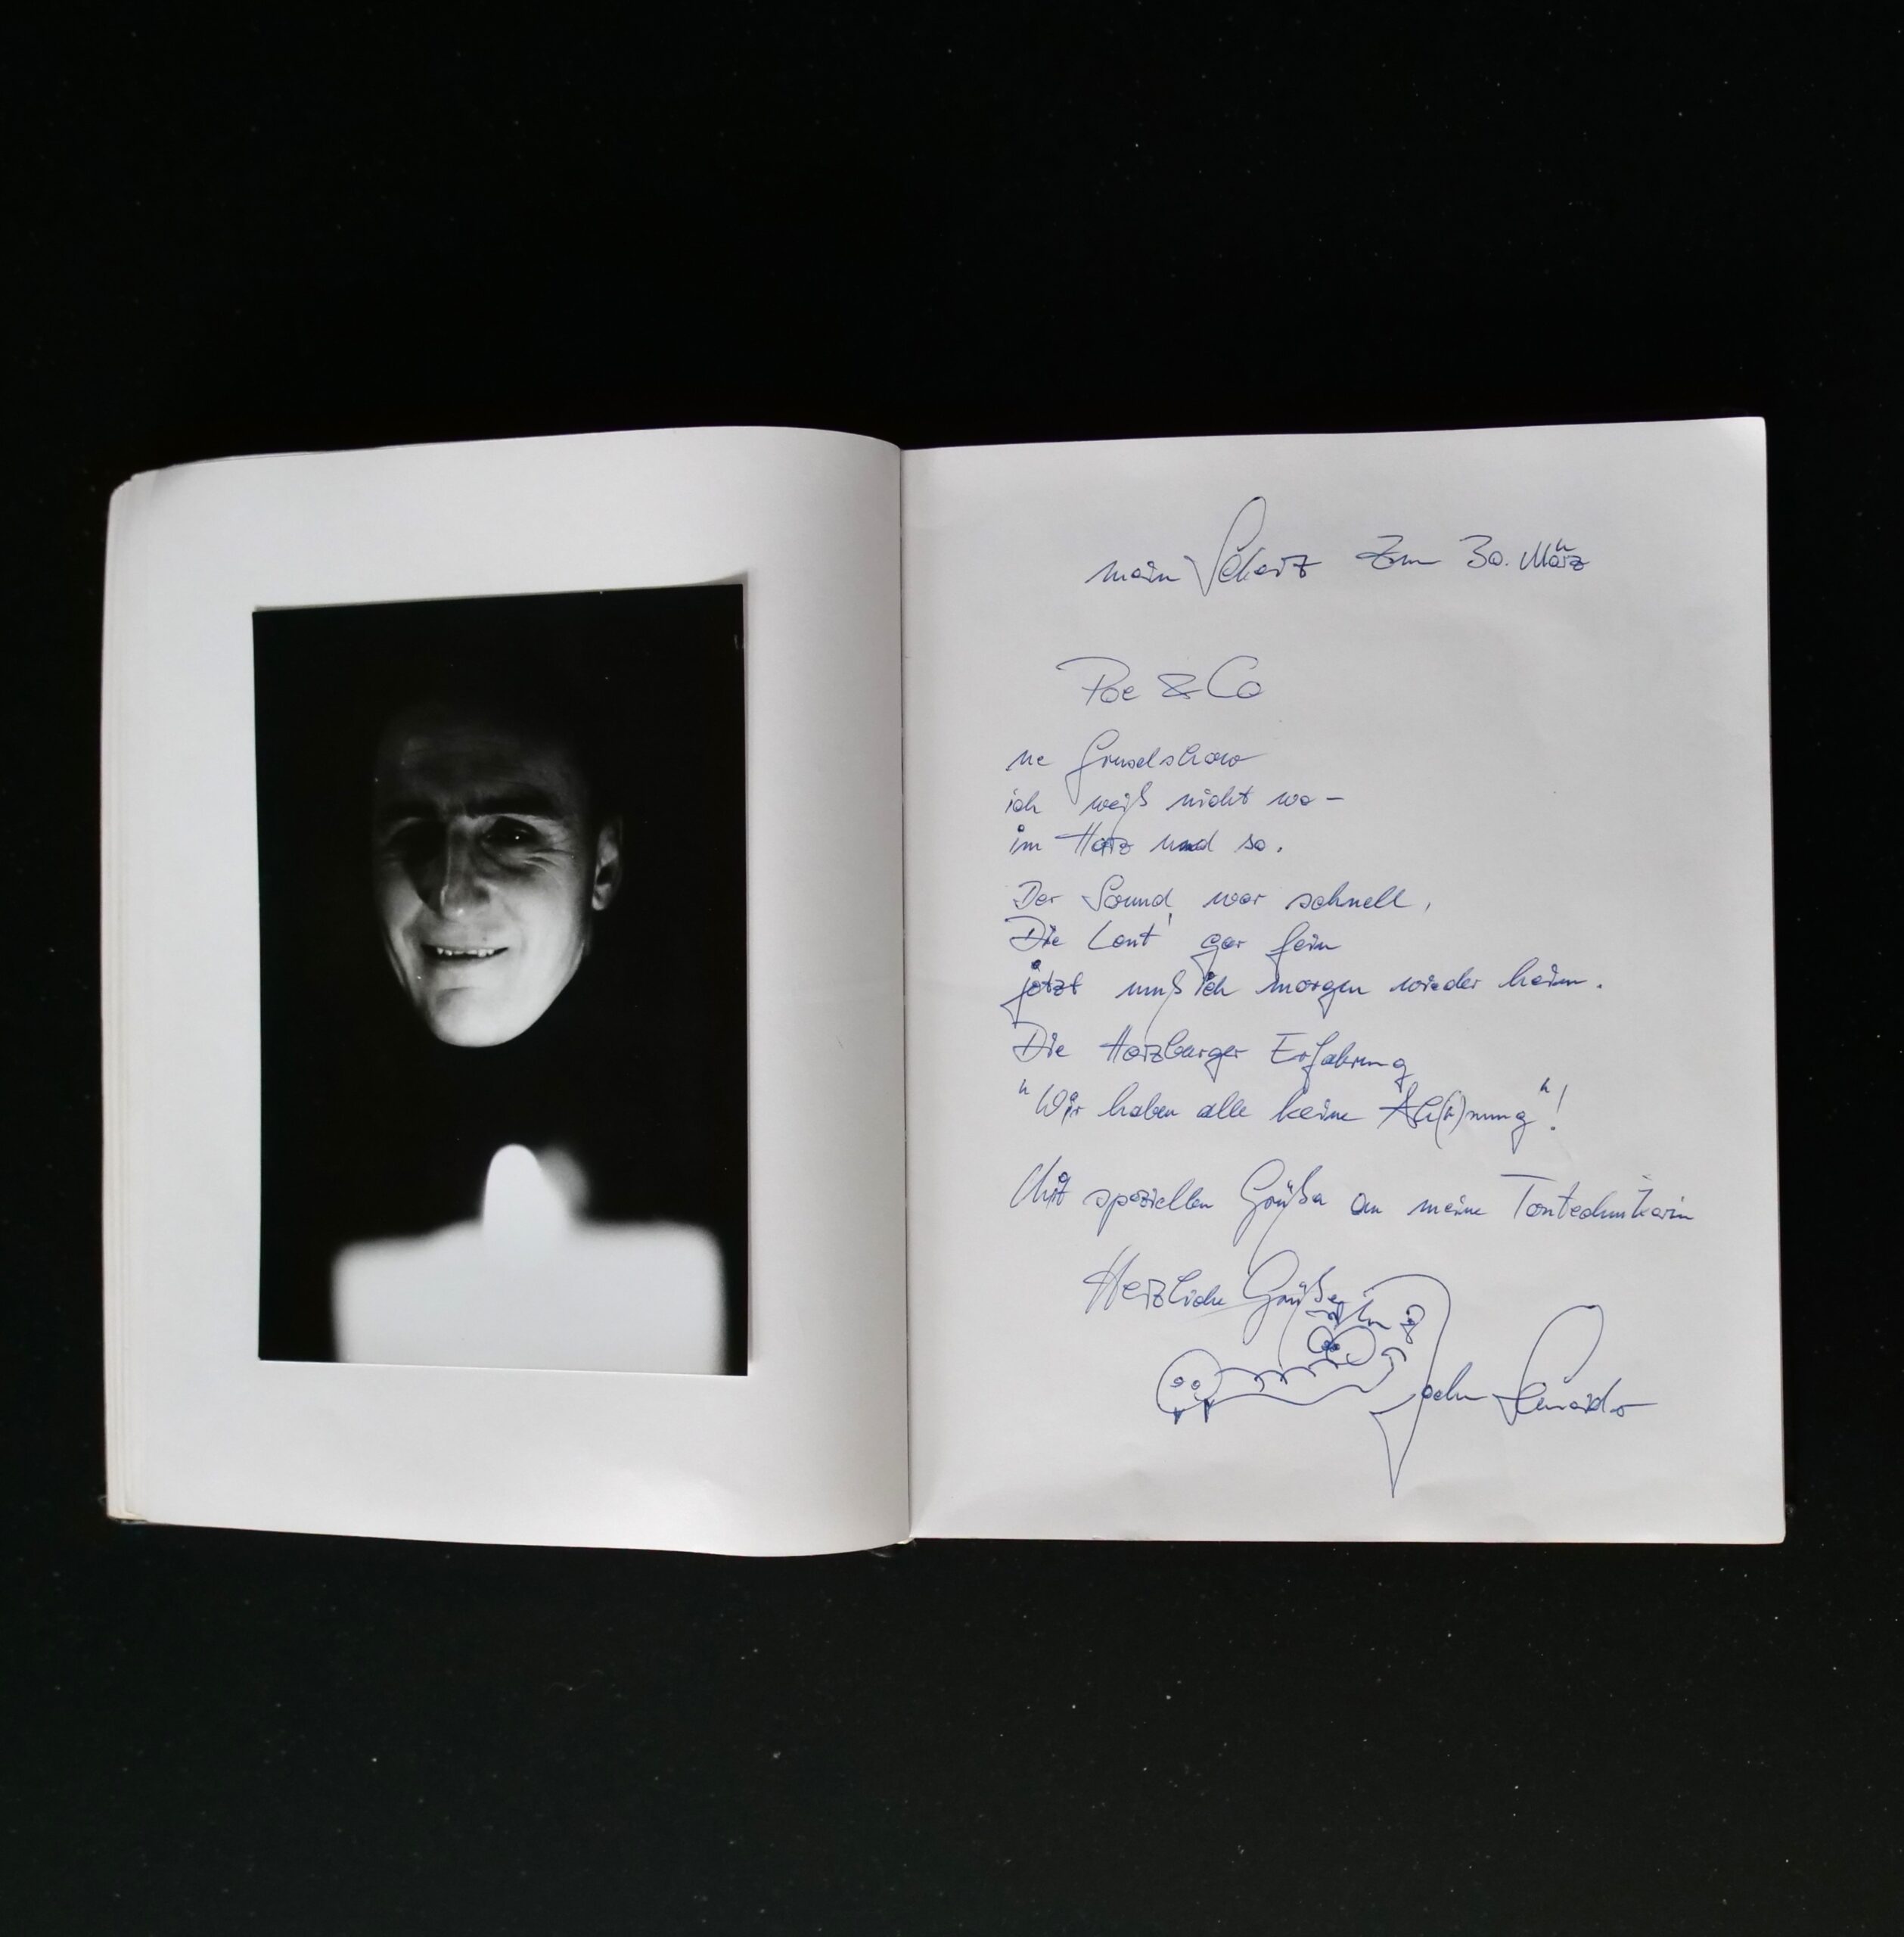 mein Scherz zum 30. März
Poe & Co
ne Gruselshow
ich weiß nicht wo –
im Harz und so.
Der Sound war schnell,
Die Leut' gar fein
jetzt muß ich morgen wieder heim.
Die Harzburger Erfahrung
"Wir haben alle keine Ah(h)nung"!
Mit speziellen Grüßen an meine Tontechnikerin
Herzliche Grüße